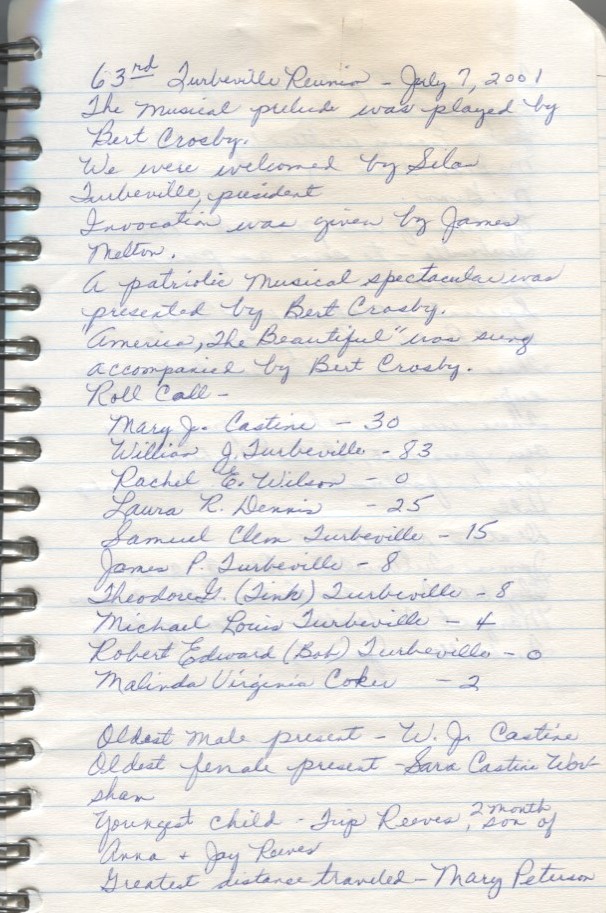 63rd Turbeville Reunion - July 7, 2001
The musical prelude was played by
Bert Crosby.
We were welcomed by Silas
Turbeville, president
Invocation was given by James
Melton.
A patriotic musical spectacular was
presented by Bert Crosby.
"America, The Beautiful" was sung
accompanied by Bert Crosby.
Roll Call -
Mary J. Castine - 30
William J. Turbeville - 83
Rachel E. Wilson - 0
Laura R. Dennis - 25
Samuel Clem Turbeville - 15
James P. Turbeville - 8
Theodore G. (Tink) Turbeville - 8
Michael Louis Turbeville - 4
Robert Edward (Bob) Turbeville - 0
Malinda Virginia Coker - 2
Oldest male present - W. J. Castine
Oldest female present - Sara Castine Wor-
sham
Youngest child - Trip Reeves, 2 month son of
Anna + Jay Reeves
Greatest distance traveled - Mary Peterson